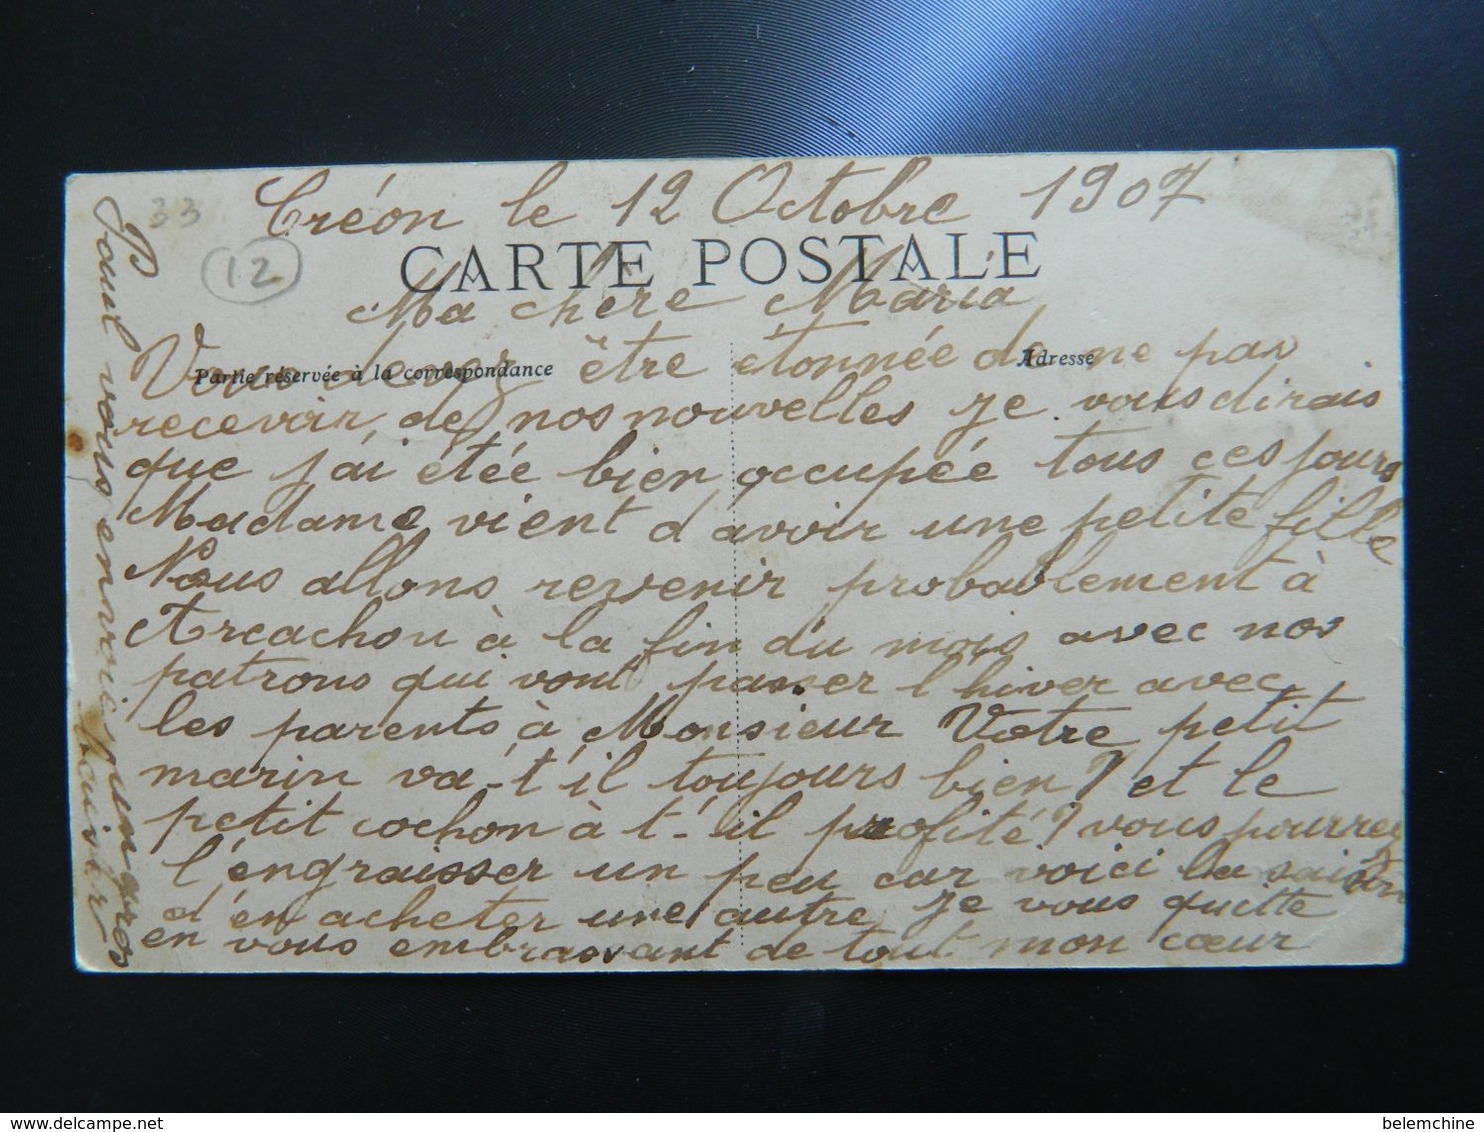 33
12
Créon le 12 Octobre 1907
CARTE POSTALE
Ma chère Maria
Partie réservée à la correspondance
Adresse
Vous devez être étonnée de ne pas
recevoir de nos nouvelles je vous dirais
que j'ai étée bien occupée tous ces jours
Madame vient d'avoir une petite fille
Nous allons revenir probablement à
Arcachon à la fin du mois avec nos
patrons qui vont passer l'hiver avec
les parents à Monsieur Votre petit
marin va-t'il toujours bien? et le
petit cochon à t-il profité? vous pourrez
l'engraisser un peu car voici la saison
d'en acheter une autre je vous quitte
en vous embrassant de tout mon cœur
Paul vous envoie un gros
baiser
delcampe.net
belemchine